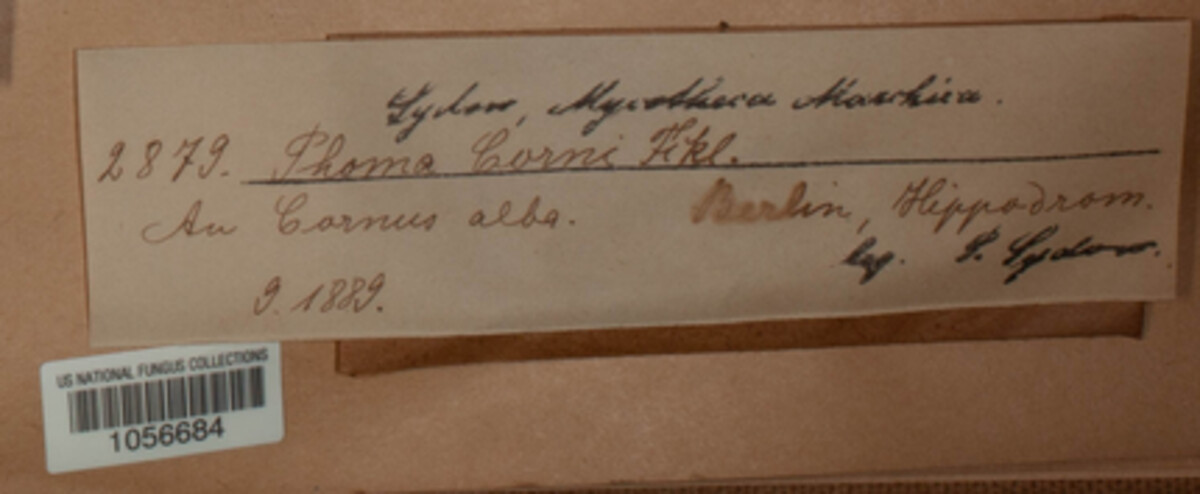 Sydow, Mycotheca Marchica.
2879. Phoma Corni Fkl.
An Cornus alba. Berlin, Hippodrom.
leg. P. Sydow.
9. 1889.
US NATIONAL FUNGUS COLLECTIONS
1056684